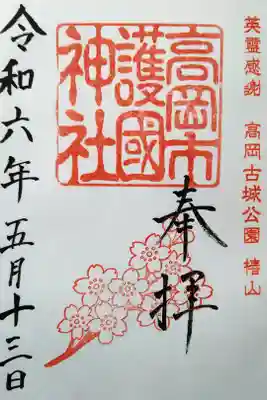 英靈感謝 高岡古城公園 椿山
高岡市
護國
神社
奉拝
令和六年五月十三日